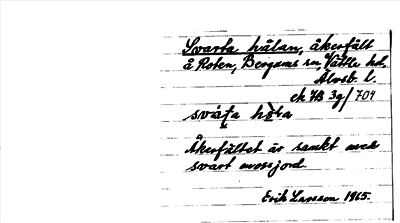 Svarta hålan, åkerfält
å Roten, Bergums sn, Vättle hd,
Älvsb. l.
ek 7B 3g/704
svaṭa
Åkerfältet är sankt med
svart mossjord.
Erik Larsson 1965.